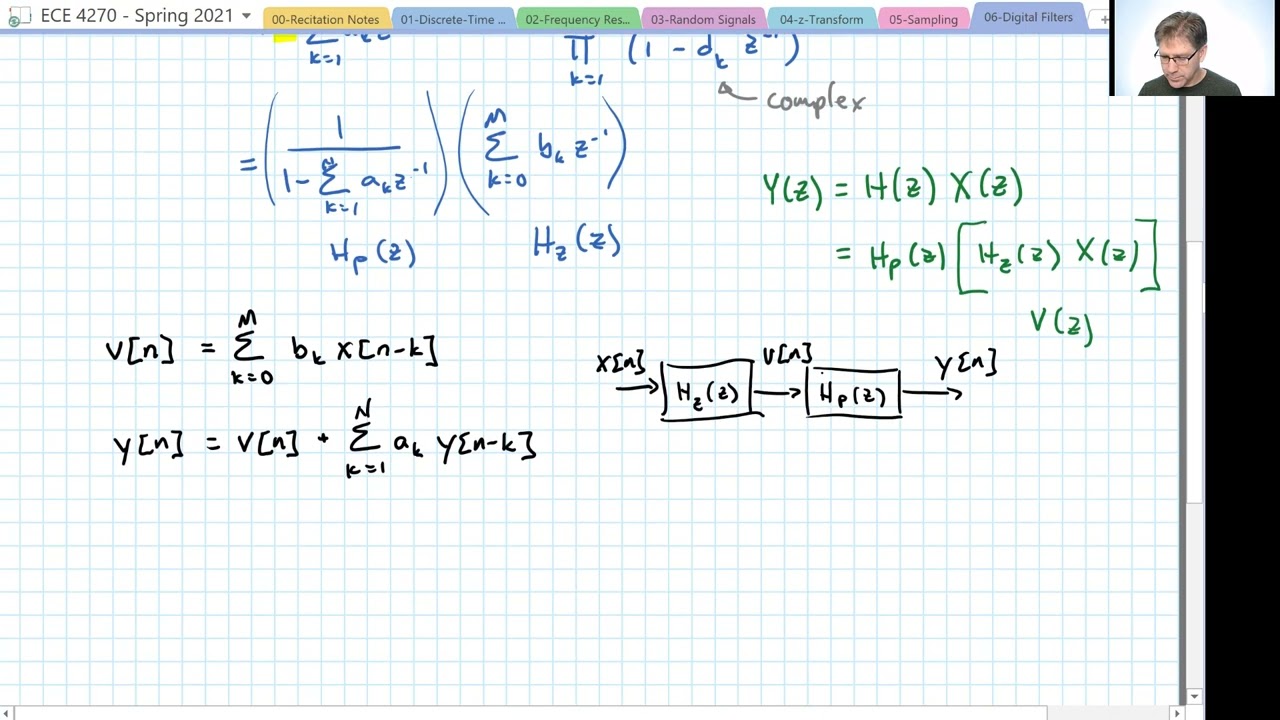 ECE 4270 - Spring 2021
00-Recitation Notes
01-Discrete-Time ...
02-Frequency Res...
03-Random Signals
04-z-Transform
05-Sampling
06-Digital Filters
k=1
∏ (1 - d_k z^-1)
k=1
complex
= (1 / (1 - Σ_{k=1}^{N} a_k z^-1)) (Σ_{k=0}^{M} b_k z^-1)
H_p(z) H_z(z)
Y(z) = H(z) X(z)
= H_p(z) [H_z(z) X(z)]
V(z)
v[n] = Σ_{k=0}^{M} b_k x[n-k]
y[n] = v[n] + Σ_{k=1}^{N} a_k y[n-k]
x[n] H_z(z) v[n] H_p(z) y[n]